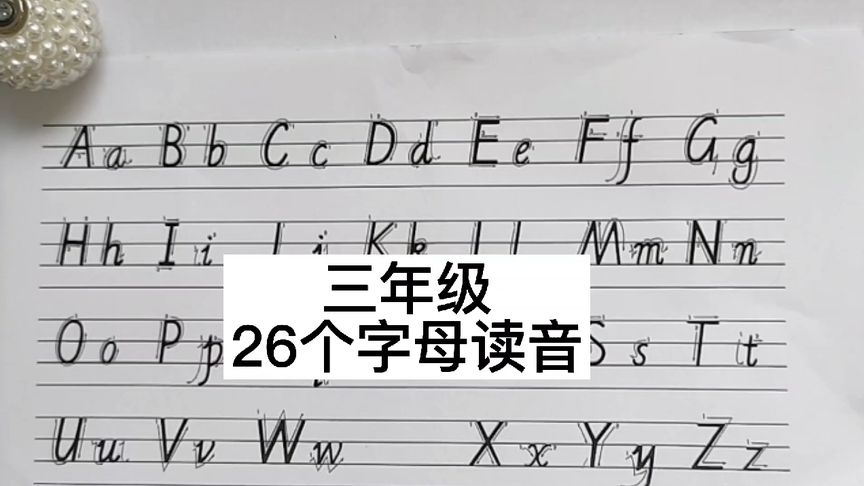 Aa Bb Cc Dd Ee Ff Gg
Hh Ii Jj Kk Ll Mm Nn
三年级
26个字母读音
Oo Pp Ss Tt
Uu Vv Ww Xx Yy Zz